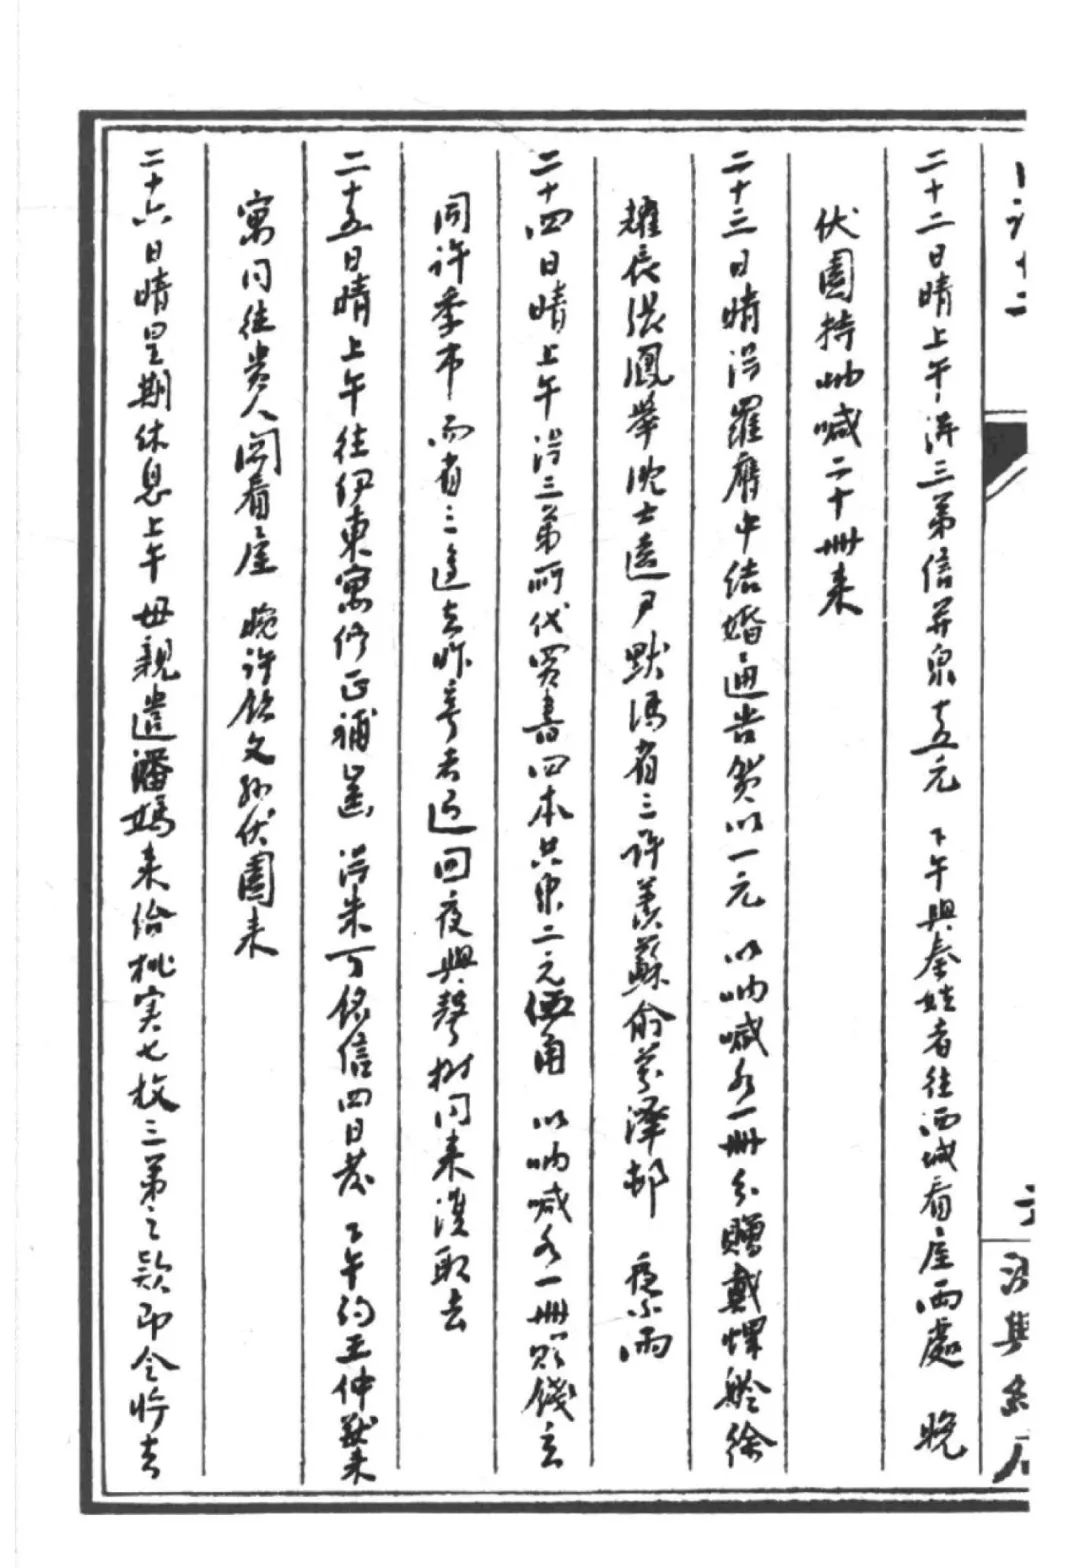 二十二日晴上午得三弟信并泉十五元　下午與秦姓者往西城看屋兩處　晚
伏園持呐喊二十冊來
二十三日晴得羅膺中結婚通告賀以一元　以呐喊各一冊分贈戴螺舲徐
耀辰張鳳舉沈士遠尹默馮省三許羨蘇俞芬澤邨　夜小雨
二十四日晴上午得三弟所代買書四本共泉二元伍角　以呐喊各一冊贈錢玄
同許季市　而省三遷去昨寄者退回夜與聲樹同來復取去
二十五日晴上午往伊東寓修正補齒　得朱可銘信四日發　下午約王仲猷來
寓同往貴人關看屋　晚許欽文孫伏園來
二十六日晴星期休息上午母親遣潘媽來給桃實七枚三弟之款即令將去